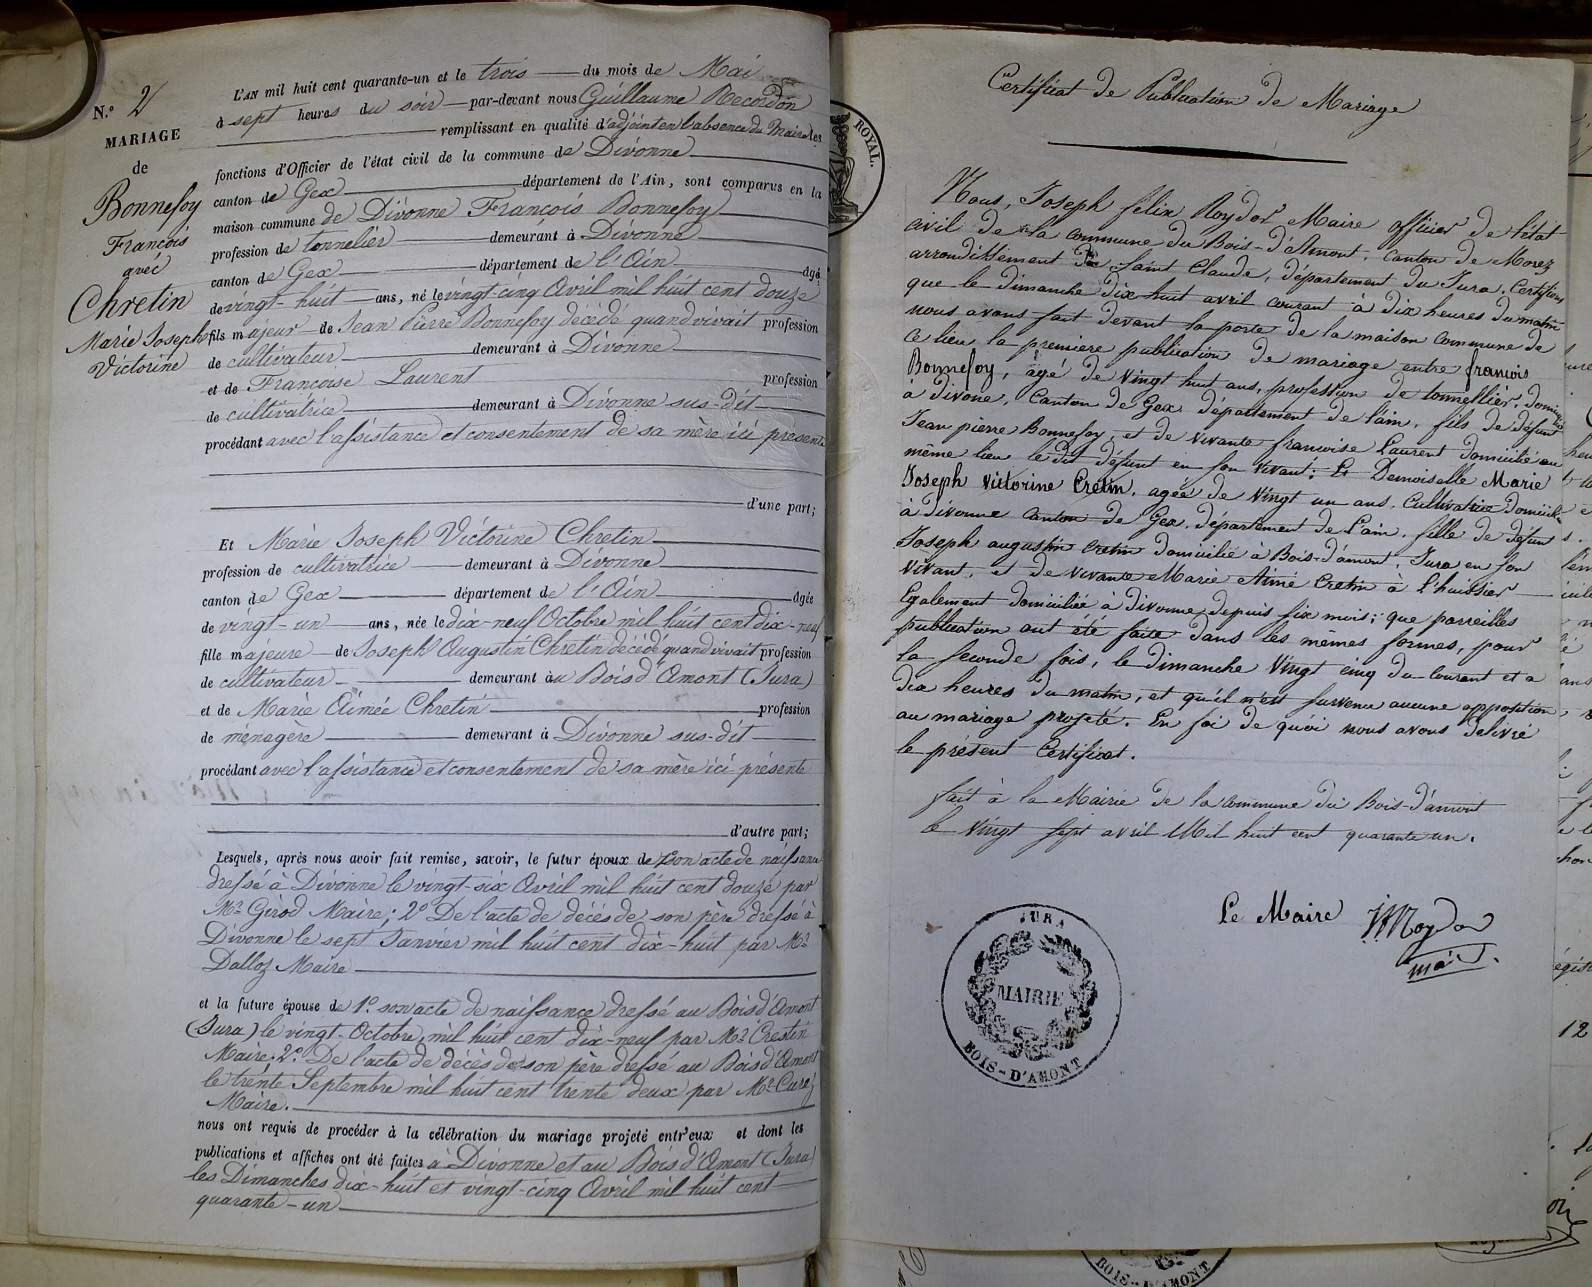 L'AN mil huit cent quarante-un et le trois du mois de Mai
à sept heures du soir par-devant nous Guillaume Recordon
remplissant en qualité d'adjoint en l'absence du Maire les
fonctions d'Officier de l'état civil de la commune de Divonne
canton de Gex département de l'Ain, sont comparus en la
maison commune de Divonne François Bonnefoy
profession de tonnelier demeurant à Divonne
canton de Gex département de l'Ain âgé
de vingt-huit ans, né le vingt-cinq Avril mil huit cent douze
fils majeur de Jean Pierre Bonnefoy décédé quand vivait profession
de cultivateur demeurant à Divonne
et de Françoise Laurent profession
de cultivatrice demeurant à Divonne sus-dit
procédant avec l'assistance et consentement de sa mère ici présente
d'une part;
Et Marie Joseph Victoire Chretin
profession de cultivatrice demeurant à Divonne
canton de Gex département de l'Ain âgée
de vingt-un ans, née le dix-neuf Octobre mil huit cent dix-neuf
fille majeure de Joseph Augustin Chretin décédé quand vivait profession
de cultivateur demeurant au Bois d'Amont (Jura)
et de Marie Aimée Chretin profession
de ménagère demeurant à Divonne sus-dit
procédant avec l'assistance et consentement de sa mère ici présente
d'autre part;
Lesquels, après nous avoir fait remise, savoir, le futur époux de 1º son acte de naissance
dressé à Divonne le vingt-six Avril mil huit cent douze par
Mr Girod Maire; 2º De l'acte de décès de son père dressé à
Divonne le sept Janvier mil huit cent dix-huit par Mr
Dalloz Maire
et la future épouse de 1º son acte de naissance dressé au Bois d'Amont
(Jura) le vingt Octobre mil huit cent dix-neuf par Mr Crestin
Maire; 2º De l'acte de décès de son père dressé au Bois d'Amont
le trente Septembre mil huit cent trente deux par Mr
Maire.
nous ont requis de procéder à la célébration du mariage projeté entr'eux et dont les
publications et affiches ont été faites à Divonne et au Bois d'Amont (Jura)
les Dimanches dix-huit et vingt-cinq Avril mil huit cent
quarante-un
N.º 2
MARIAGE
de
Bonnefoy
François
avec
Chretin
Marie Joseph
Victorine
ROYAL.
Certificat de Publication de Mariage
Nous, Joseph félix Roydor Maire officier de l'état
civil de la commune du Bois-d'Amont, canton de Morez
arrondissement de Saint Claude, département du Jura, Certifions
que le dimanche dix huit avril courant à dix heures du matin
nous avons fait devant la porte de la maison commune de
ce lieu la premiere publication de mariage entre françois
Bonnefoy, âgé de vingt huit ans, profession de tonnellier, domicilié
à divone, Canton de Gex département de l'ain, fils de défunt
Jean pierre Bonnefoy, et de vivante francoise Laurent domiciliée au
même lieu le dit défunt en son vivant; Et Demoiselle Marie
Joseph victorine Cretin, agée de vingt un ans, Cultivatrice domiciliée
à divonne canton de Gex, département de l'ain, fille de défunt
Joseph augustin Cretin domicilié à Bois-d'amont, Jura en son
vivant, et de vivante Marie Aimé Cretin à l'huissier
également domiciliée à divonne depuis six mois; que parreilles
publication ont été faite dans les mêmes formes, pour
la seconde fois, le dimanche vingt cinq du courant et à
dix heures du matin, et qu'il n'est survenu aucune opposition
au mariage projeté. En foi de quoi nous avons délivré
le présent Certificat.
fait à la Mairie de la commune du Bois-d'amont
le vingt sept avril Mil huit cent quarante un.
Le Maire
JURA
MAIRIE
BOIS-D'AMONT
12
BOIS-D'AMONT